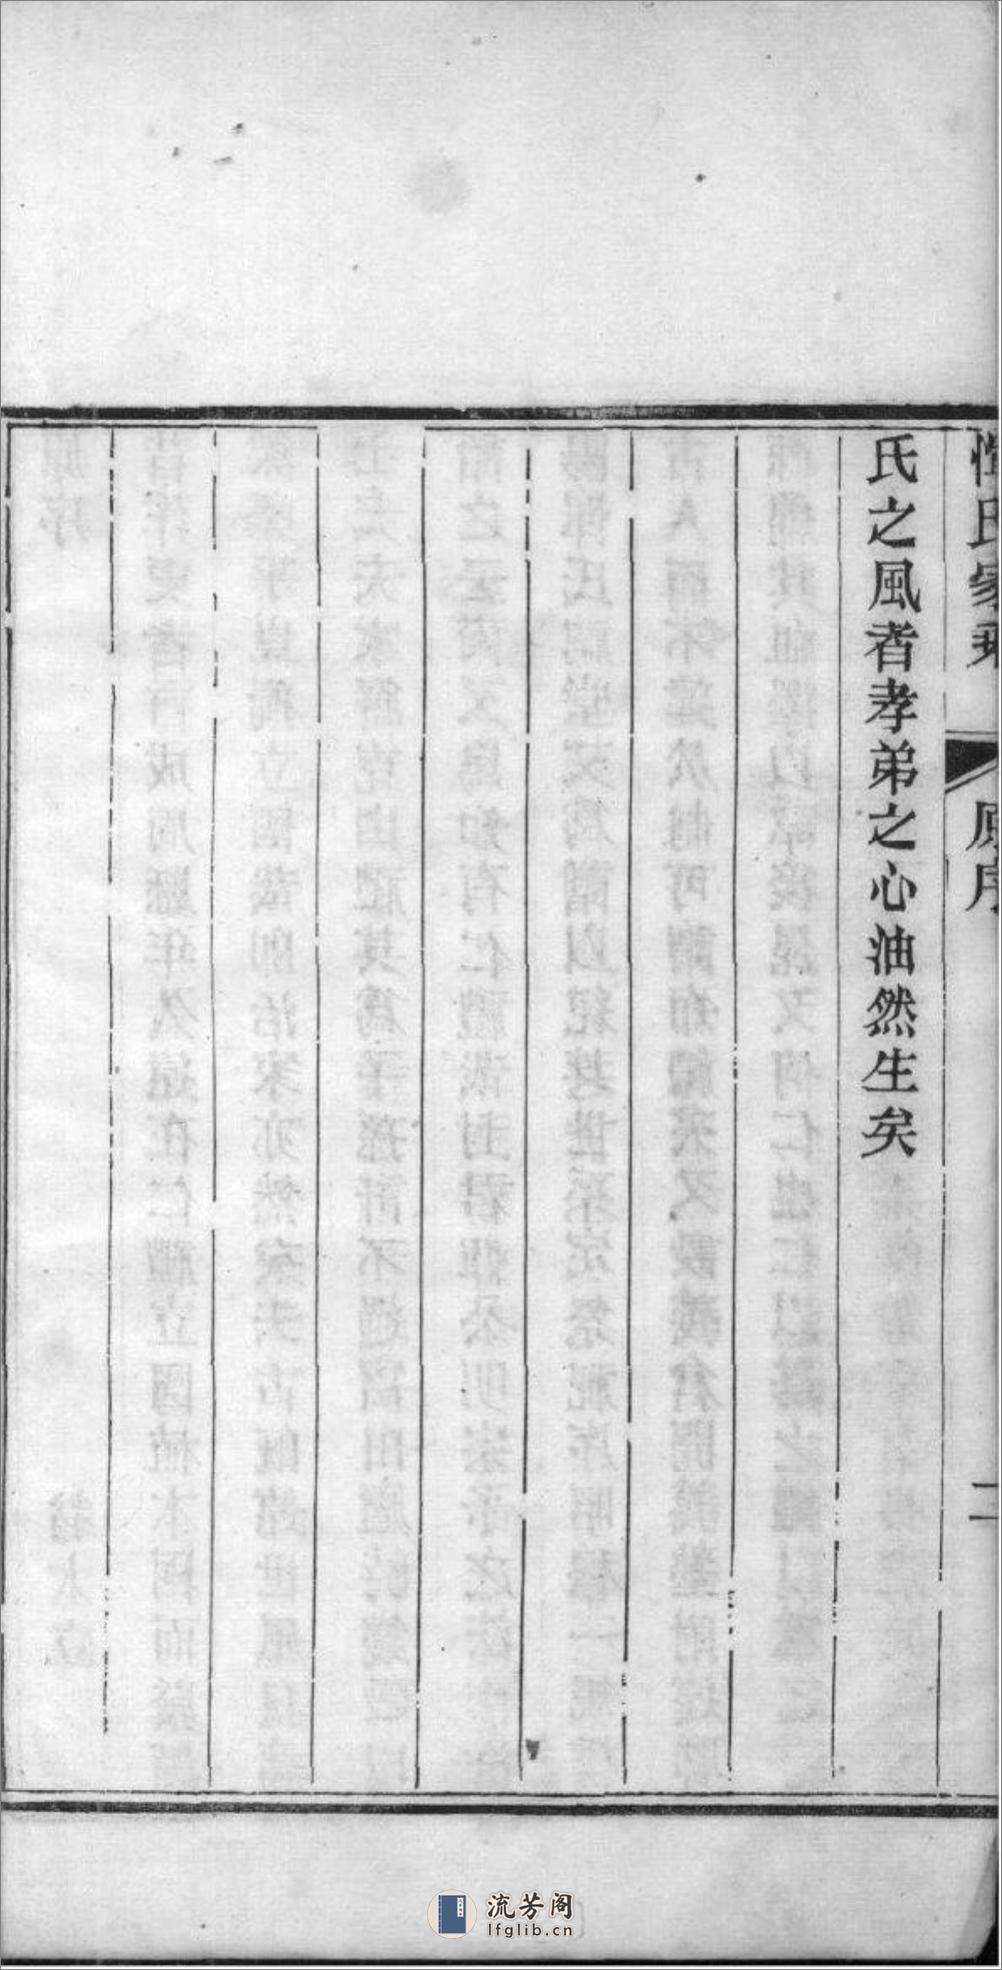 惲氏家乘
原序
二
氏之風者孝弟之心油然生矣
流芳阁
lfglib.cn